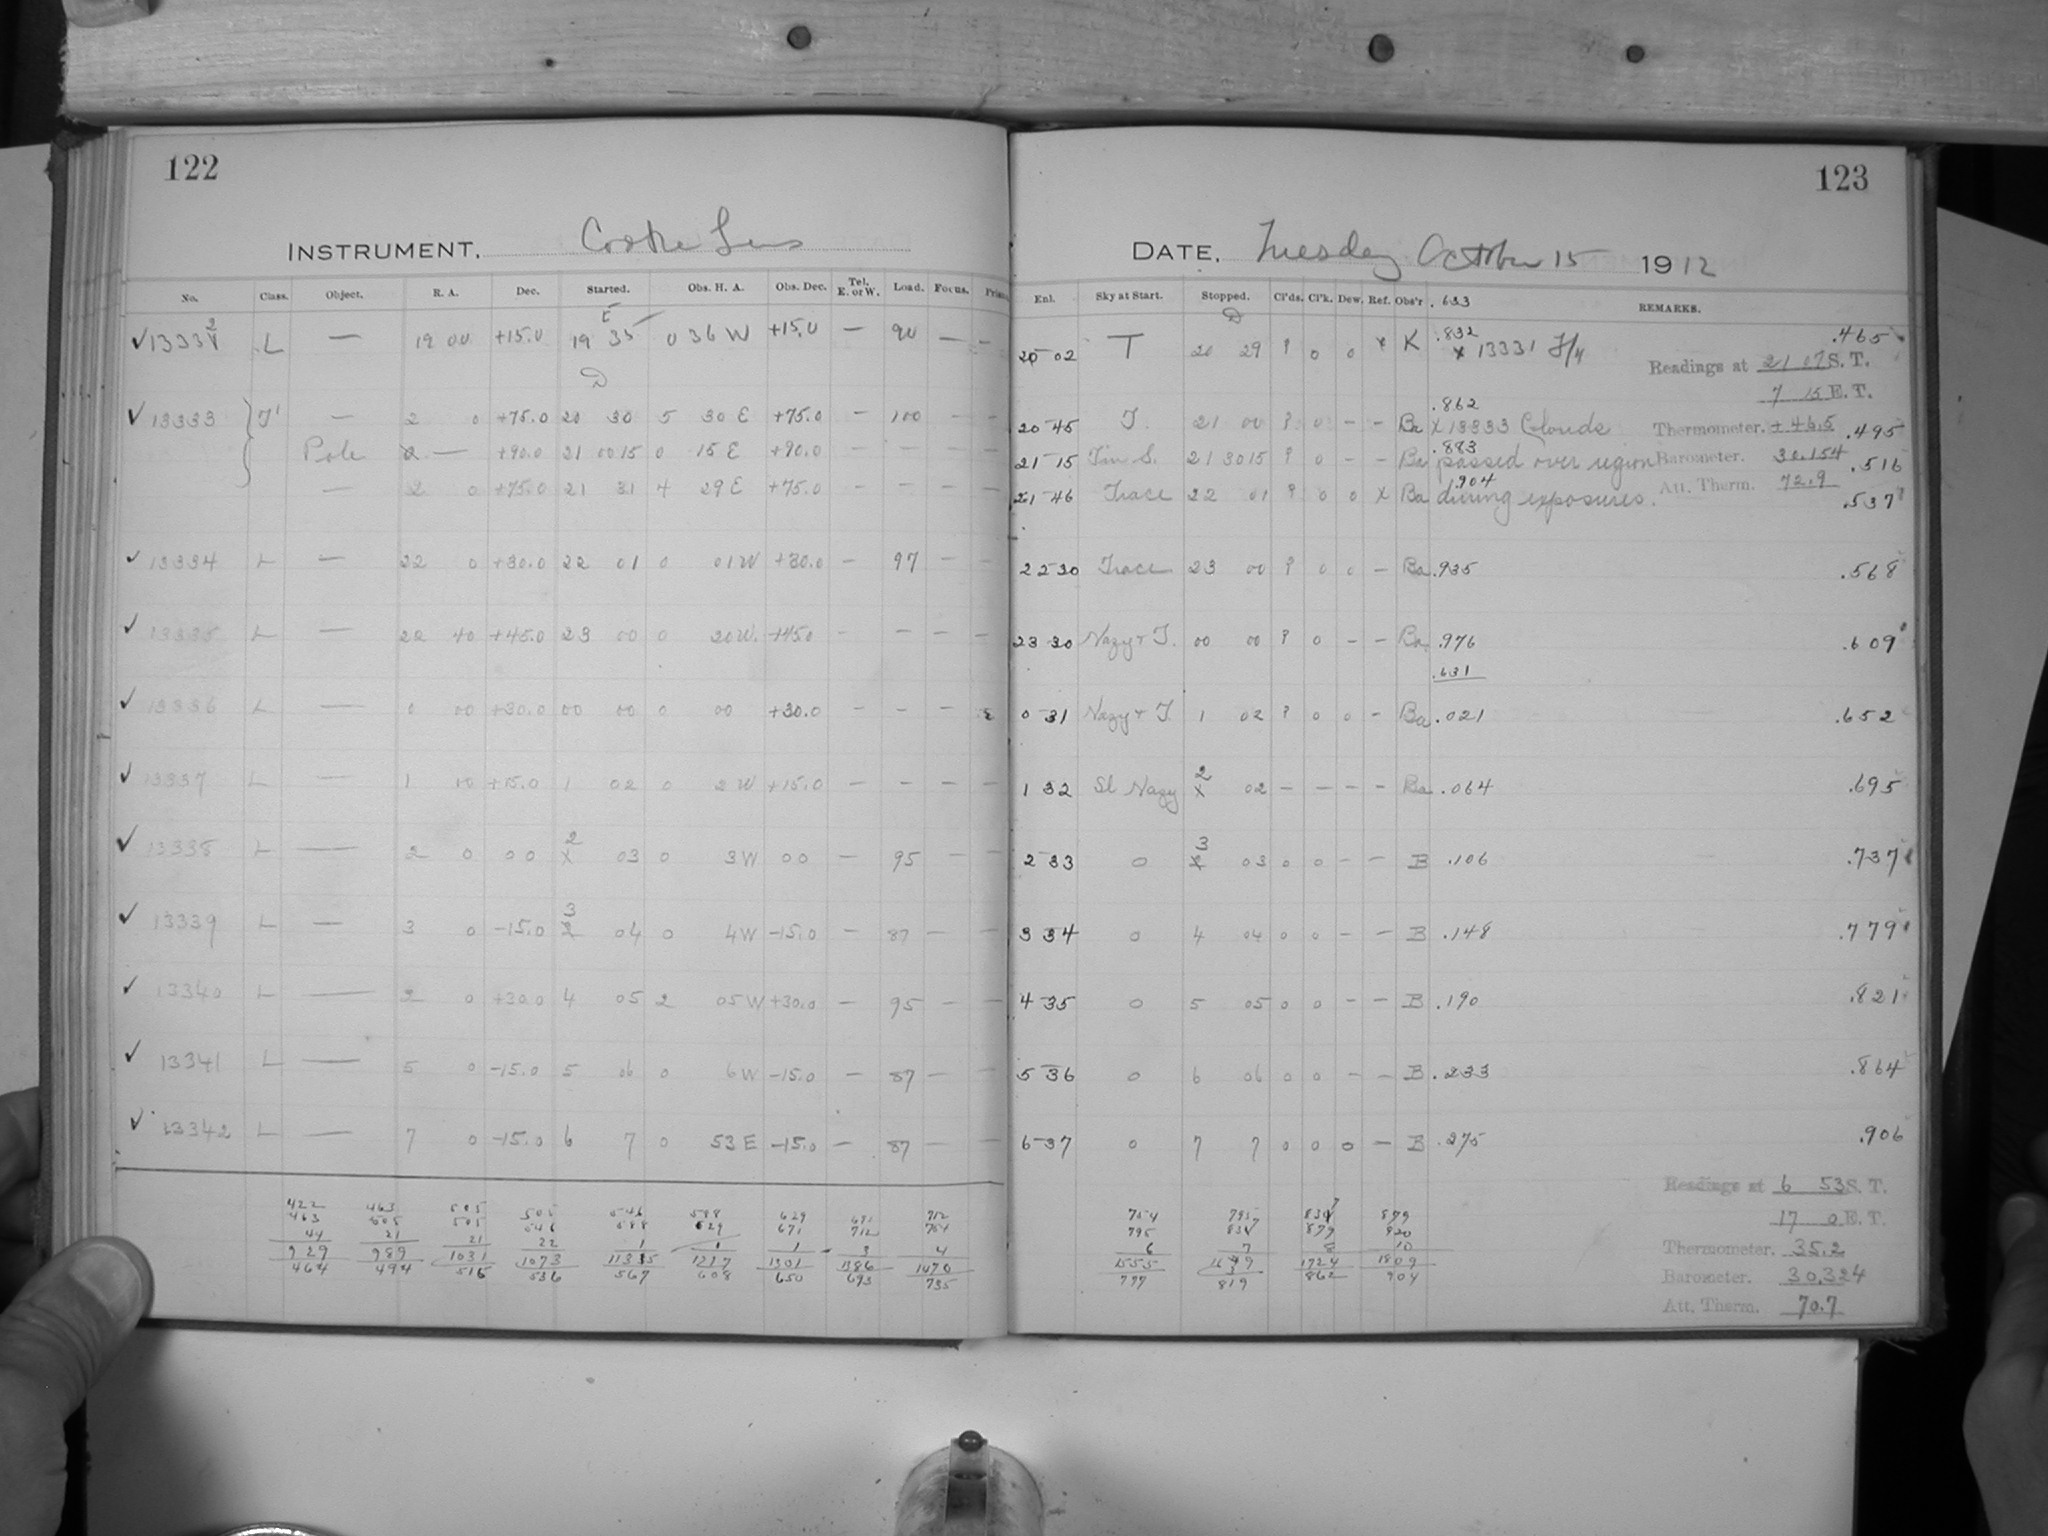 122
INSTRUMENT. Cooke Lens
No. Class. Object. R. A. Dec. Started. Obs. H. A. Obs. Dec. Tel. E. or W. Load. Focus.
E
✓ 13332 L — 19 00 +15.0 19 35 0 36 W +15.0 — 90 — —
D
✓ 13333 — 2 0 +75.0 20 30 5 30 E +75.0 — 100 — —
Pole — +90.0 21 00 15 0 15 E +90.0 — — — —
— 2 0 +75.0 21 31 4 29 E +75.0 — — — —
✓ 13334 L — 22 0 +30.0 22 01 0 01 W +30.0 — 97 — —
✓ 13335 L — 22 40 +45.0 23 00 0 20 W. +45.0 — — — —
✓ 13336 L — 0 00 +30.0 00 00 0 00 +30.0 — — —
✓ 13337 L — 1 00 +15.0 1 02 0 2 W +15.0 — — — —
✓ 13338 L — 2 0 0 0 2 03 0 3 W 0 0 — 95 — —
✓ 13339 L — 3 0 -15.0 3 04 0 4 W -15.0 — 87 — —
✓ 13340 L — 2 0 +30.0 4 05 2 05 W +30.0 — 95 — —
✓ 13341 L — 5 0 -15.0 5 06 0 6 W -15.0 — 87 — —
✓ 13342 L — 7 0 -15.0 6 7 0 53 E -15.0 — 87 — —
422 463 505 505 546 588 629 671 712
463 505 505 546 588 629 671 712 754
44 21 21 22 1 1 1 3 4
929 989 1031 1073 1217 1301 1386 1470
464 494 515 536 567 608 650 693 735
123
DATE, Tuesday October 15 1912
Enl. Sky at Start. Stopped. Cl'ds. Cl'k. Dew. Ref. Obs'r .633 REMARKS.
D
20 02 T 20 29 ? 0 0 x K .832 x 13331 .465
Readings at 21 07 S. T.
7 15 E. T.
.862
20 45 T. 21 00 ? 0 — — Ba x 13333 Clouds Thermometer. +46.5 .495
.883
21 15 21 30 15 ? 0 — — Ba passed over region Barometer. 30.154 .516
.904
21 46 Trace 22 01 ? 0 0 x Ba during exposures. Att. Therm. 72.9 .537
22 30 Trace 23 00 ? 0 0 — Ba .935 .568
23 30 Hazy + T. 00 00 ? 0 — — Ba .976 .609
.631
0 31 Hazy + T 1 02 ? 0 0 — Ba .021 .652
1 32 Sl Hazy 2 02 — — — — Ba .064 .695
2 33 0 3 03 0 0 — — B .106 .737
3 34 0 4 04 0 0 — — B .148 .779
4 35 0 5 05 0 0 — — B .190 .821
5 36 0 6 06 0 0 — — B .233 .864
6 37 0 7 7 0 0 0 — B .275 .906
Readings at 6 53 S. T.
17 0 E. T.
Thermometer. 35.2
Barometer. 30.324
Att. Therm. 70.7
754 795 837 879
795 837 879 920
6 7 8 10
1555 1724 1809
777 819 862 904